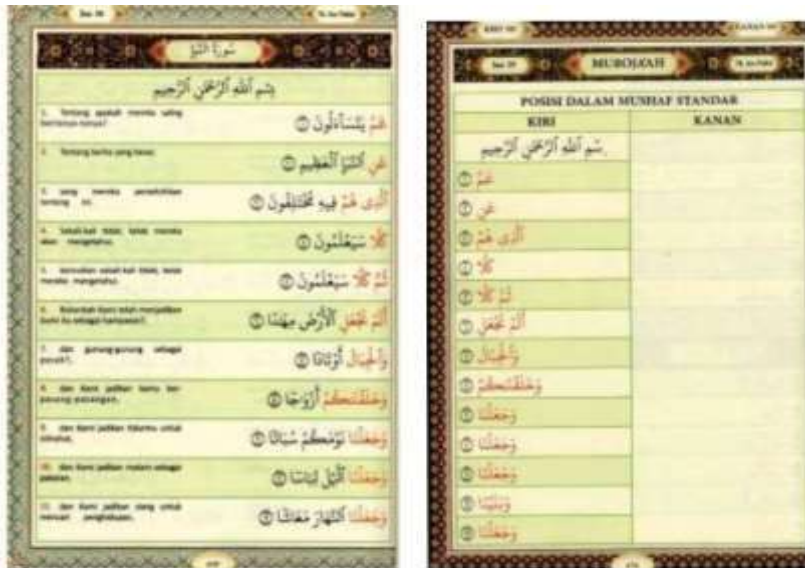 سورة النبإ
بسم الله الرحمن الرحيم
1. Tentang apakah mereka saling
عَمَّ يَتَسَآءَلُونَ ①
2. Tentang berita yang besar,
عَنِ ٱلنَّبَإِ ٱلْعَظِيمِ ②
3. yang mereka perselisihkan
tentang ini.
ٱلَّذِى هُمْ فِيهِ مُخْتَلِفُونَ ③
4. Sekali-kali tidak; kelak mereka
akan mengetahui,
كَلَّا سَيَعْلَمُونَ ④
5. kemudian sekali-kali tidak; kelak
mereka mengetahui.
ثُمَّ كَلَّا سَيَعْلَمُونَ ⑤
6. Bukankah Kami telah menjadikan
bumi itu sebagai hamparan?,
أَلَمْ نَجْعَلِ ٱلْأَرْضَ مِهَٰدًا ⑥
7. dan gunung-gunung sebagai
pasak?,
وَٱلْجِبَالَ أَوْتَادًا ⑦
8. dan Kami jadikan kamu ber-
pasang-pasangan,
وَخَلَقْنَٰكُمْ أَزْوَٰجًا ⑧
9. dan Kami jadikan tidurmu untuk
istirahat,
وَجَعَلْنَا نَوْمَكُمْ سُبَاتًا ⑨
10. dan Kami jadikan malam sebagai
pakaian,
وَجَعَلْنَا ٱلَّيْلَ لِبَاسًا ⑩
11. dan Kami jadikan siang untuk
mencari penghidupan,
وَجَعَلْنَا ٱلنَّهَارَ مَعَاشًا ⑪
MUROJA'AH
POSISI DALAM MUSHAF STANDAR
KIRI KANAN
بسم الله الرحمن الرحيم
عَمَّ ①
عَنِ ②
ٱلَّذِى هُمْ ③
كَلَّا ④
ثُمَّ كَلَّا ⑤
أَلَمْ نَجْعَلِ ⑥
وَٱلْجِبَالَ ⑦
وَخَلَقْنَٰكُمْ ⑧
وَجَعَلْنَا ⑨
وَجَعَلْنَا ⑩
وَجَعَلْنَا ⑪
وَبَنَيْنَا ⑫
وَجَعَلْنَا ⑬